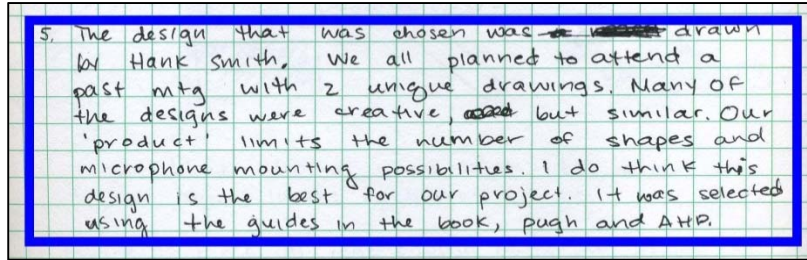 5. The design that was chosen was drawn
by Hank Smith. We all planned to attend a
past mtg with 2 unique drawings. Many of
the designs were creative, but similar. Our
'product' limits the number of shapes and
microphone mounting possibilities. I do think this
design is the best for our project. It was selected
using the guides in the book, pugh and AHP.